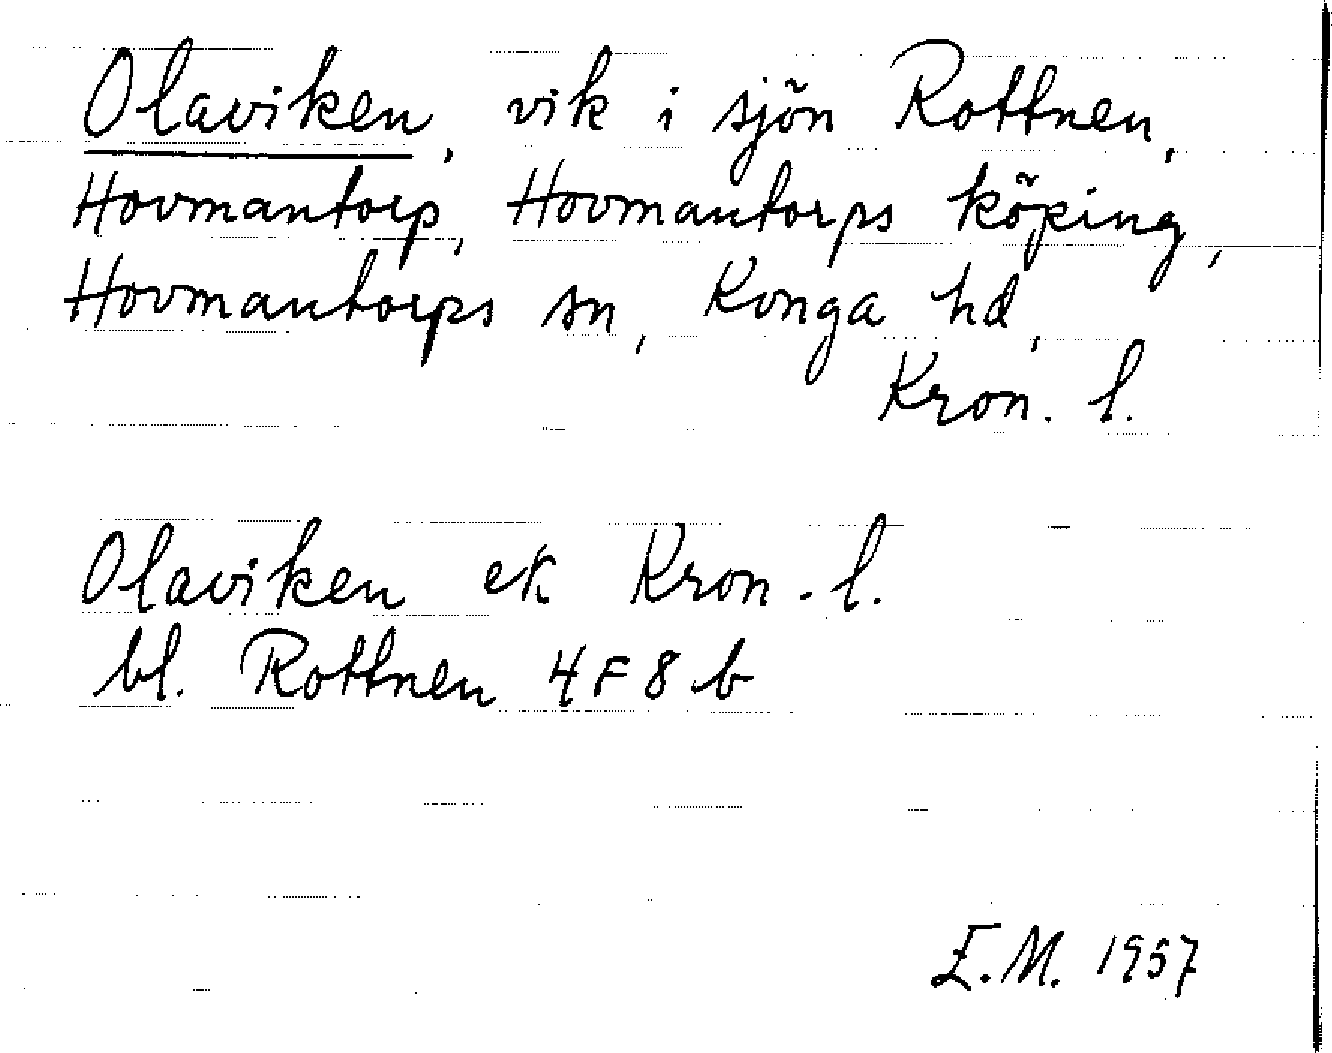 Olaviken, vik i sjön Rottnen,
Hovmantorp, Hovmantorps köping,
Hovmantorps sn, Konga hd,
Kron. l.
Olaviken ek Kron. l.
bl. Rottnen 4F8b
E.M. 1957